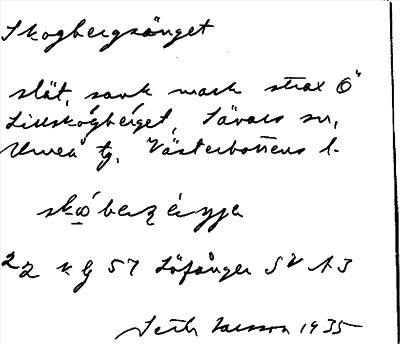 Skogbergsänget
slät, sank mark strax Ö
Lillskogberget, Sävars sn,
Umeå tg, Västerbottens l.
22 57 Löfånger SV
Seth Larsson 1935